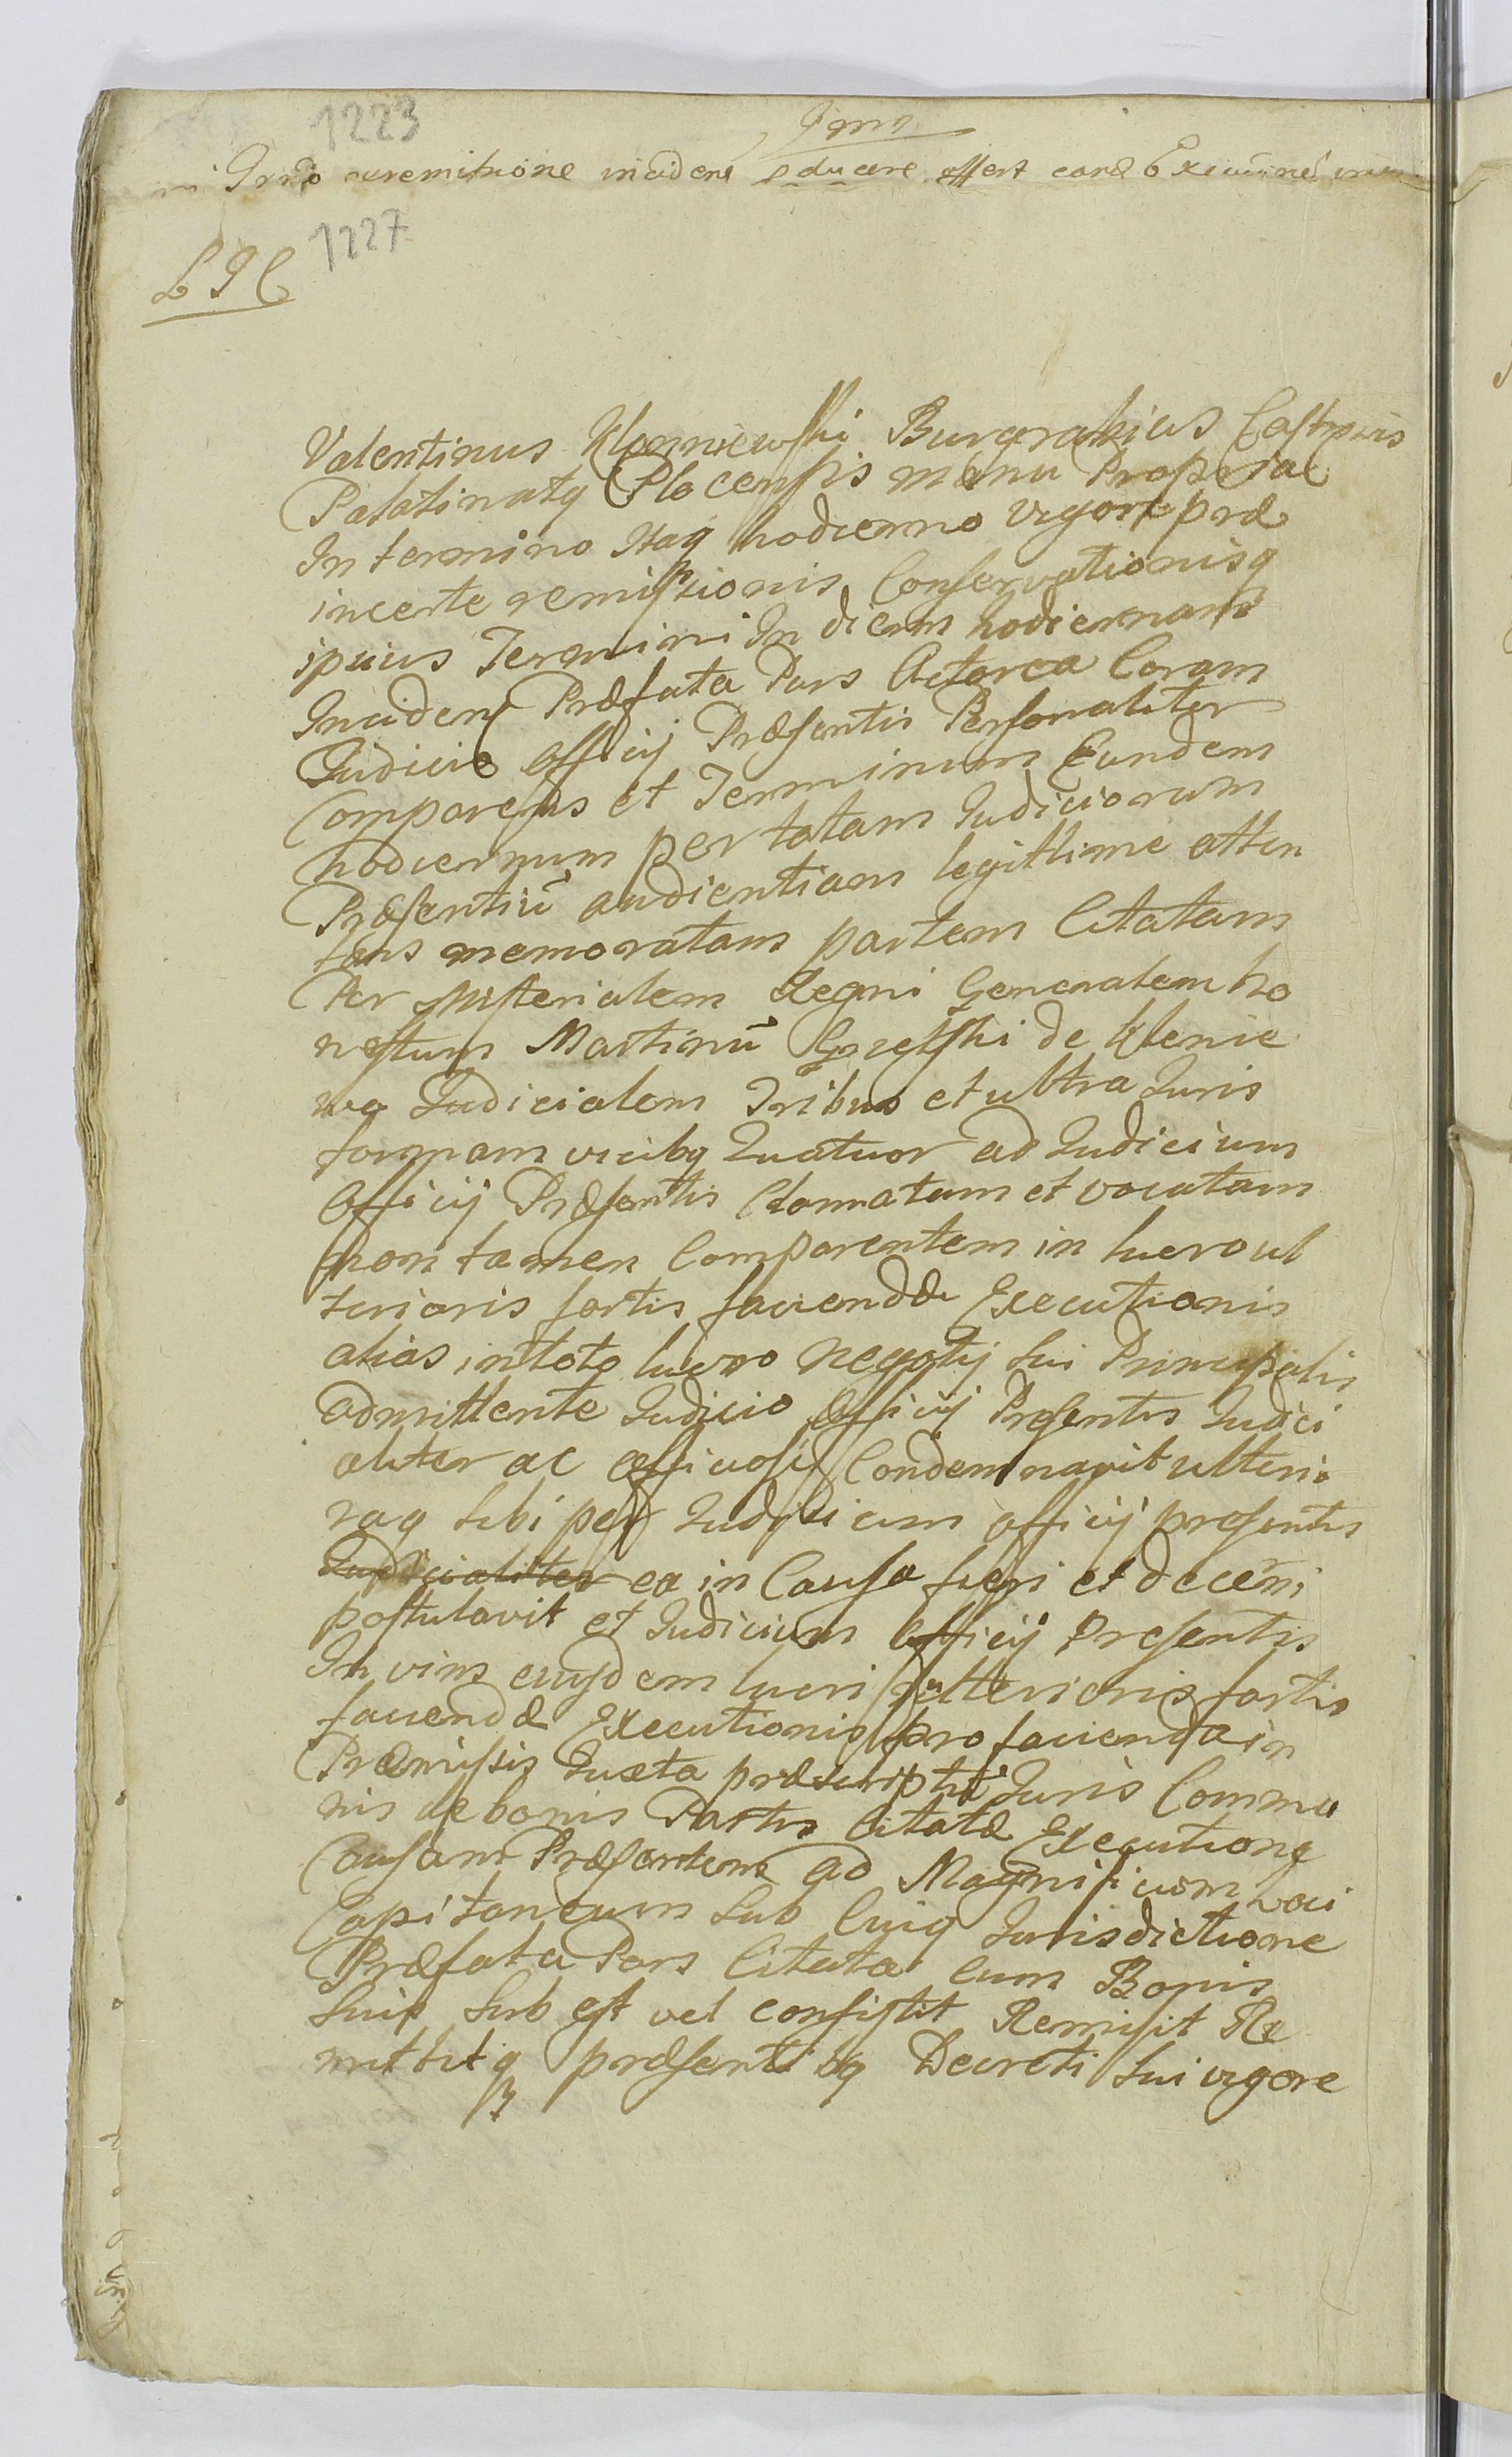 1223
remissione incidens educere offert
1227
Valentinus Burgrabius Castrensis
Palatinatq Plocensis manu Propria
In termino Itaq hodierno vigore præ
incerte remissionis Conservationisq
ipsius Termini In diem hodiernam
Incidens Præfata Pars Actorea Coram
Judicio Officij Præsentis Personaliter
Comparens et Terminum Eundem
hodiernum per totam Judiciorum
Præsentiū audientiam legittime atten
tans memoratam partem Citatam
Per Misterialem Regni Generalem ho
nestum Martinū de Klenie
wo Judicialem Tribus et ultra Juris
formam vicibq Quatuor ad Judicium
Officij Præsentis Clamatam et vocatam
non tamen Comparentem in lucro ul
terioris fortis faciendæ Executionis
alias in toto lucro negotij sui Principalis
admittente Judicio Officij Presentis Judici
aliter ac officiose Condemnavit ulteri
raq sibi per Judicium officij presentis
Judicialiter ea in Causa fieri et decerni
postulavit et Judicium Officij Presentis
In vim eiusdem lucri ulterioris fortis
faciendæ Executionis pro facienda in
Præmissis Juxta præscriptū Juris Commu
nis de bonis Partis Citatæ Executione
Causam Præsentem ad Magnificum loci
Capitaneum sub Cuiq Jurisdictione
Præfata Pars Citata cum Bonis
Suis Sub est vel consistit Remisit Re
mittitq præsentibq Decreti sui vigore